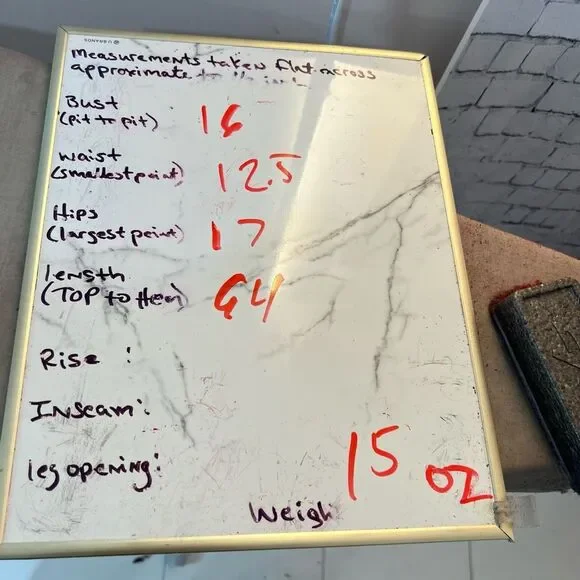 Measurements taken flat across
approximate to the inch
Bust
(pit to pit) 16
waist
(smallest point) 12.5
Hips
(largest point) 17
length
(TOP to Hem) 64
Rise :
Inseam:
leg opening:
15 oz
Weigh